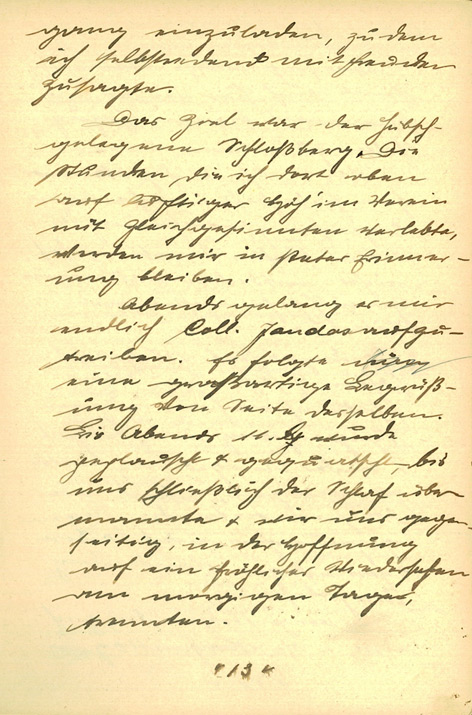 gang einzuladen, zu dem
ich selbstredend mit Freuden
zusagte.
Das Ziel war der hübsch-
gelegene Schloßberg. Die
Stunden die ich dort oben
auf luftiger Höh' im Verein
mit Gleichgesinnten verlebte,
werden mir in steter Erinner-
ung bleiben.
Abends gelang es mir
endlich Coll. Jandas aufzu-
treiben. Es folgte
eine großartige Begrüß-
ung von Seite desselben.
Bis Abends 11. wurde
geplauscht & gequatscht, bis
uns schließlich der Schlaf über-
mannte & wir uns gegen-
seitig, in der Hoffnung
auf ein fröhliches Wiedersehen
am morgigen Tage,
trennten.